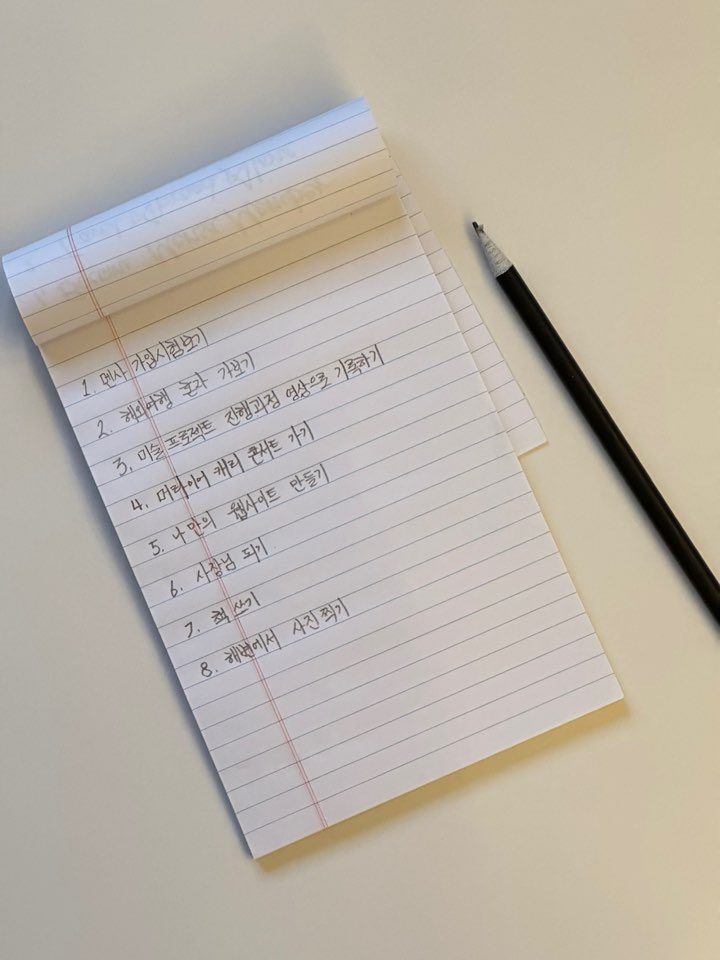 1. 멘사 가입시험보기
2. 해외여행 혼자 가보기
3. 미술 프로젝트 진행과정 영상으로 기록하기
4. 머라이어 캐리 콘서트 가기
5. 나만의 웹사이트 만들기
6. 사장님 되기
7. 책 쓰기
8. 해변에서 사진찍기